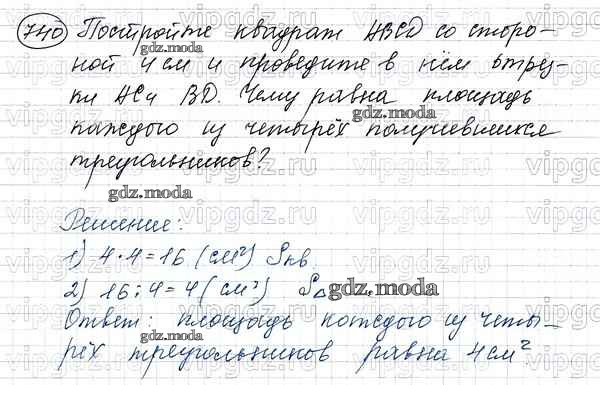 740 Постройте квадрат ABCD со сторо-
ной 4 см и проведите в нём отрез-
ки AC и BD. Чему равна площадь
каждого из четырёх получившихся
треугольников?
gdz.moda
gdz.moda
gdz.moda
gdz.moda
Решение:
1) 4·4=16 (см²) Sкв.
2) 16:4=4 (см²) S△
gdz.moda
Ответ: площадь каждого из четы-
рёх треугольников равна 4 см².
gdz.moda
vipgdz.ru